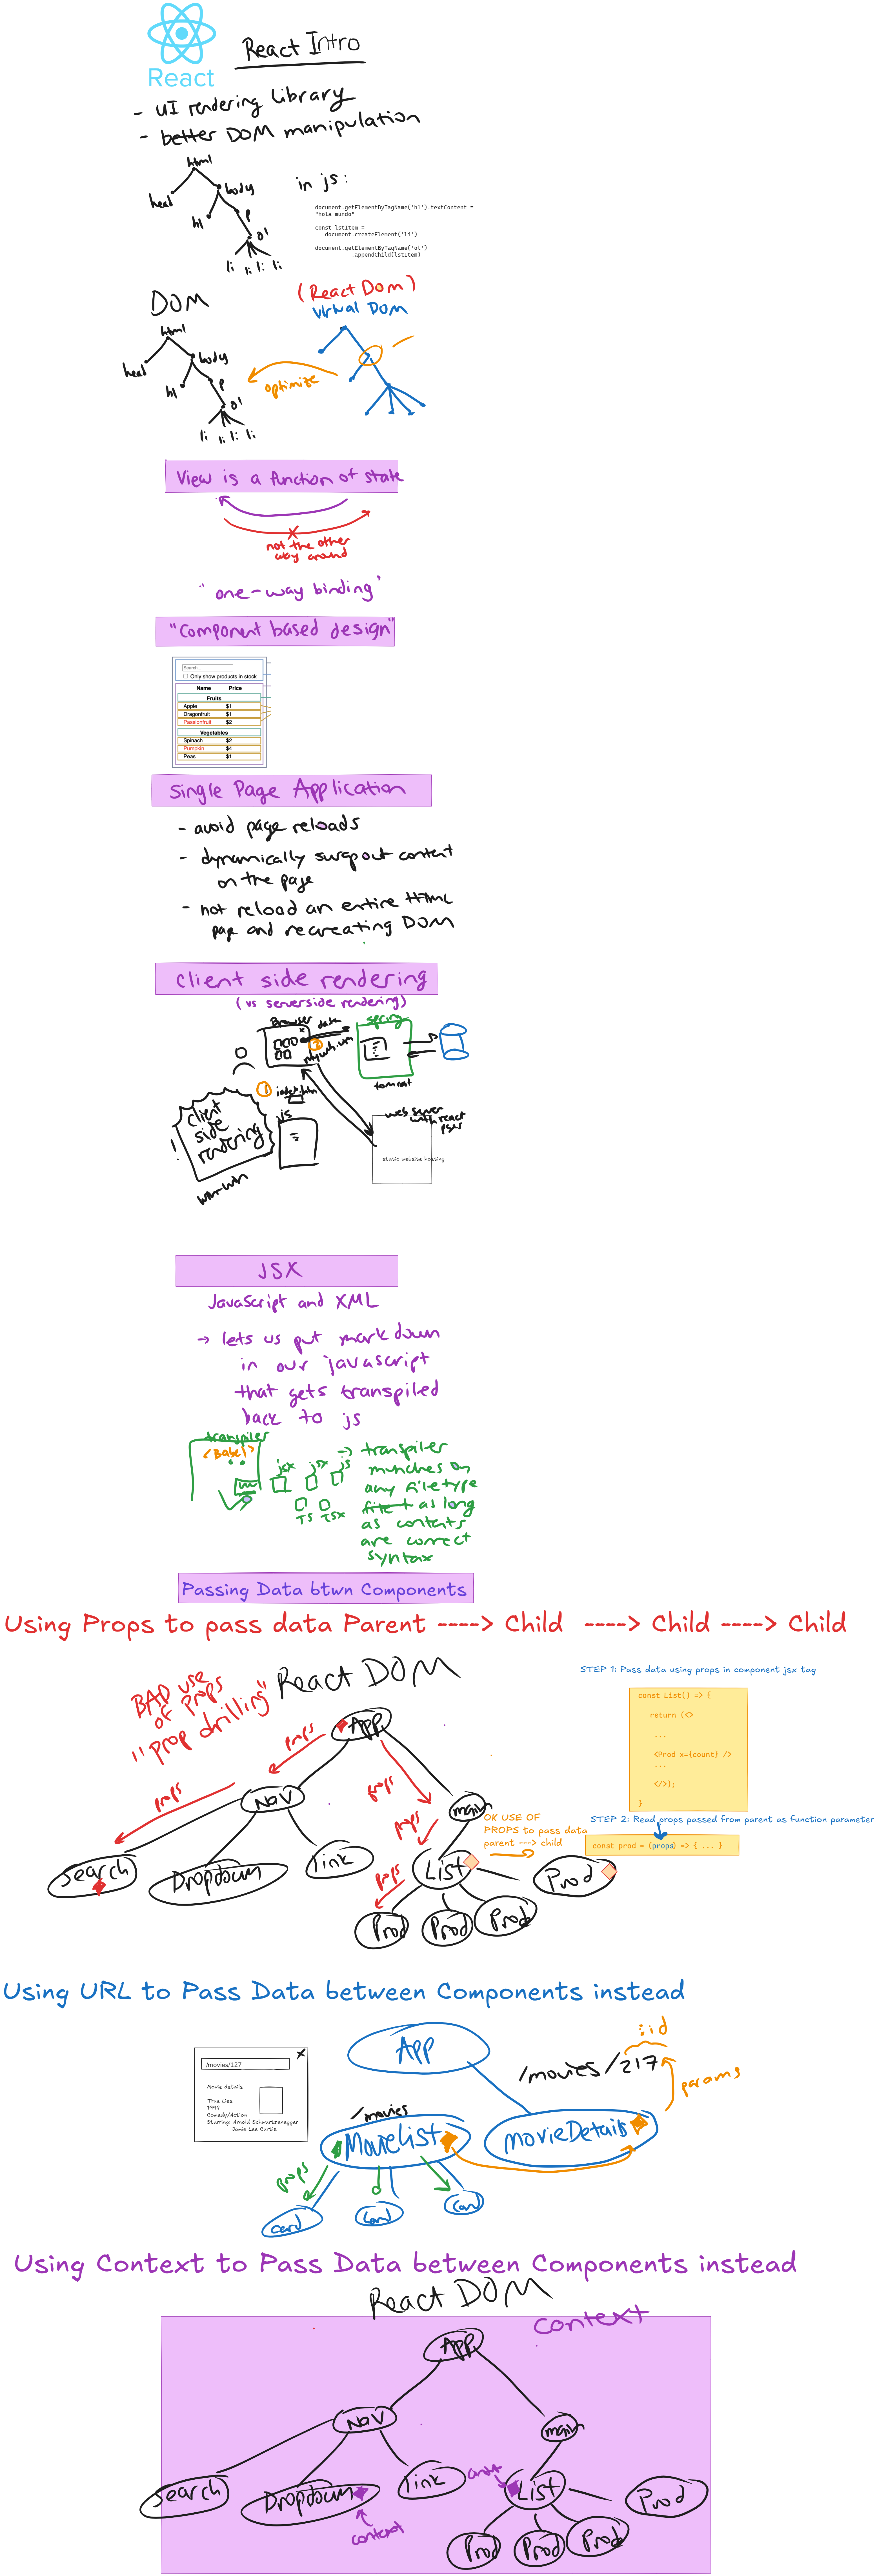 React
React Intro
- UI rendering library
- better DOM manipulation
html
head
body
h1
p
ol
li li li li
in js:
document.getElementByTagName('h1').textContent =
"hola mundo"
const lstItem =
document.createElement('li')
document.getElementByTagName('ol')
.appendChild(lstItem)
DOM
(React Dom)
virtual DOM
html
head
body
h1
p
ol
li li li li
optimize
View is a function of state
not the other
way around
"one-way binding"
"Component based design"
Search...
Only show products in stock
Name Price
Fruits
Apple $1
Dragonfruit $1
Passionfruit $2
Vegetables
Spinach $2
Pumpkin $4
Peas $1
Single Page Application
- avoid page reloads
- dynamically swap out content
on the page
- not reload an entire HTML
page and recreating DOM
client side rendering
(vs serverside rendering)
Browser
data
spring
tomcat
1
js
web server
with react
static website hosting
client
side
rendering
!
win-win
JSX
JavaScript and XML
→ lets us put markdown
in our javascript
that gets transpiled
back to js
transpiler
<Babel>
jsx jsx js
TS TSX
→ transpiler
munches on
any filetype
as long
as contents
are correct
syntax
Passing Data btwn Components
Using Props to pass data Parent ----> Child ----> Child ----> Child
BAD use
of props
"prop drilling"
React DOM
STEP 1: Pass data using props in component jsx tag
const List() => {
return (<>
...
<Prod x={count} />
...
</>);
}
STEP 2: Read props passed from parent as function parameter
const prod = (props) => { ... }
App
props
props
props
props
props
Nav
main
OK USE OF
PROPS to pass data
parent ---> child
Search
Dropdown
link
List
Prod
Prod
Prod
Prod
Using URL to Pass Data between Components instead
/movies/127
X
Movie details
True Lies
1994
Comedy/Action
Starring: Arnold Schwartzenegger
Jamie Lee Curtis
App
:id
/movies/217
params
/movies
MovieList
movieDetails
props
card
Card
Card
Using Context to Pass Data between Components instead
React DOM
Context
App
Nav
main
Search
Dropdown
context
link
List
Prod
Prod
Prod
Prod